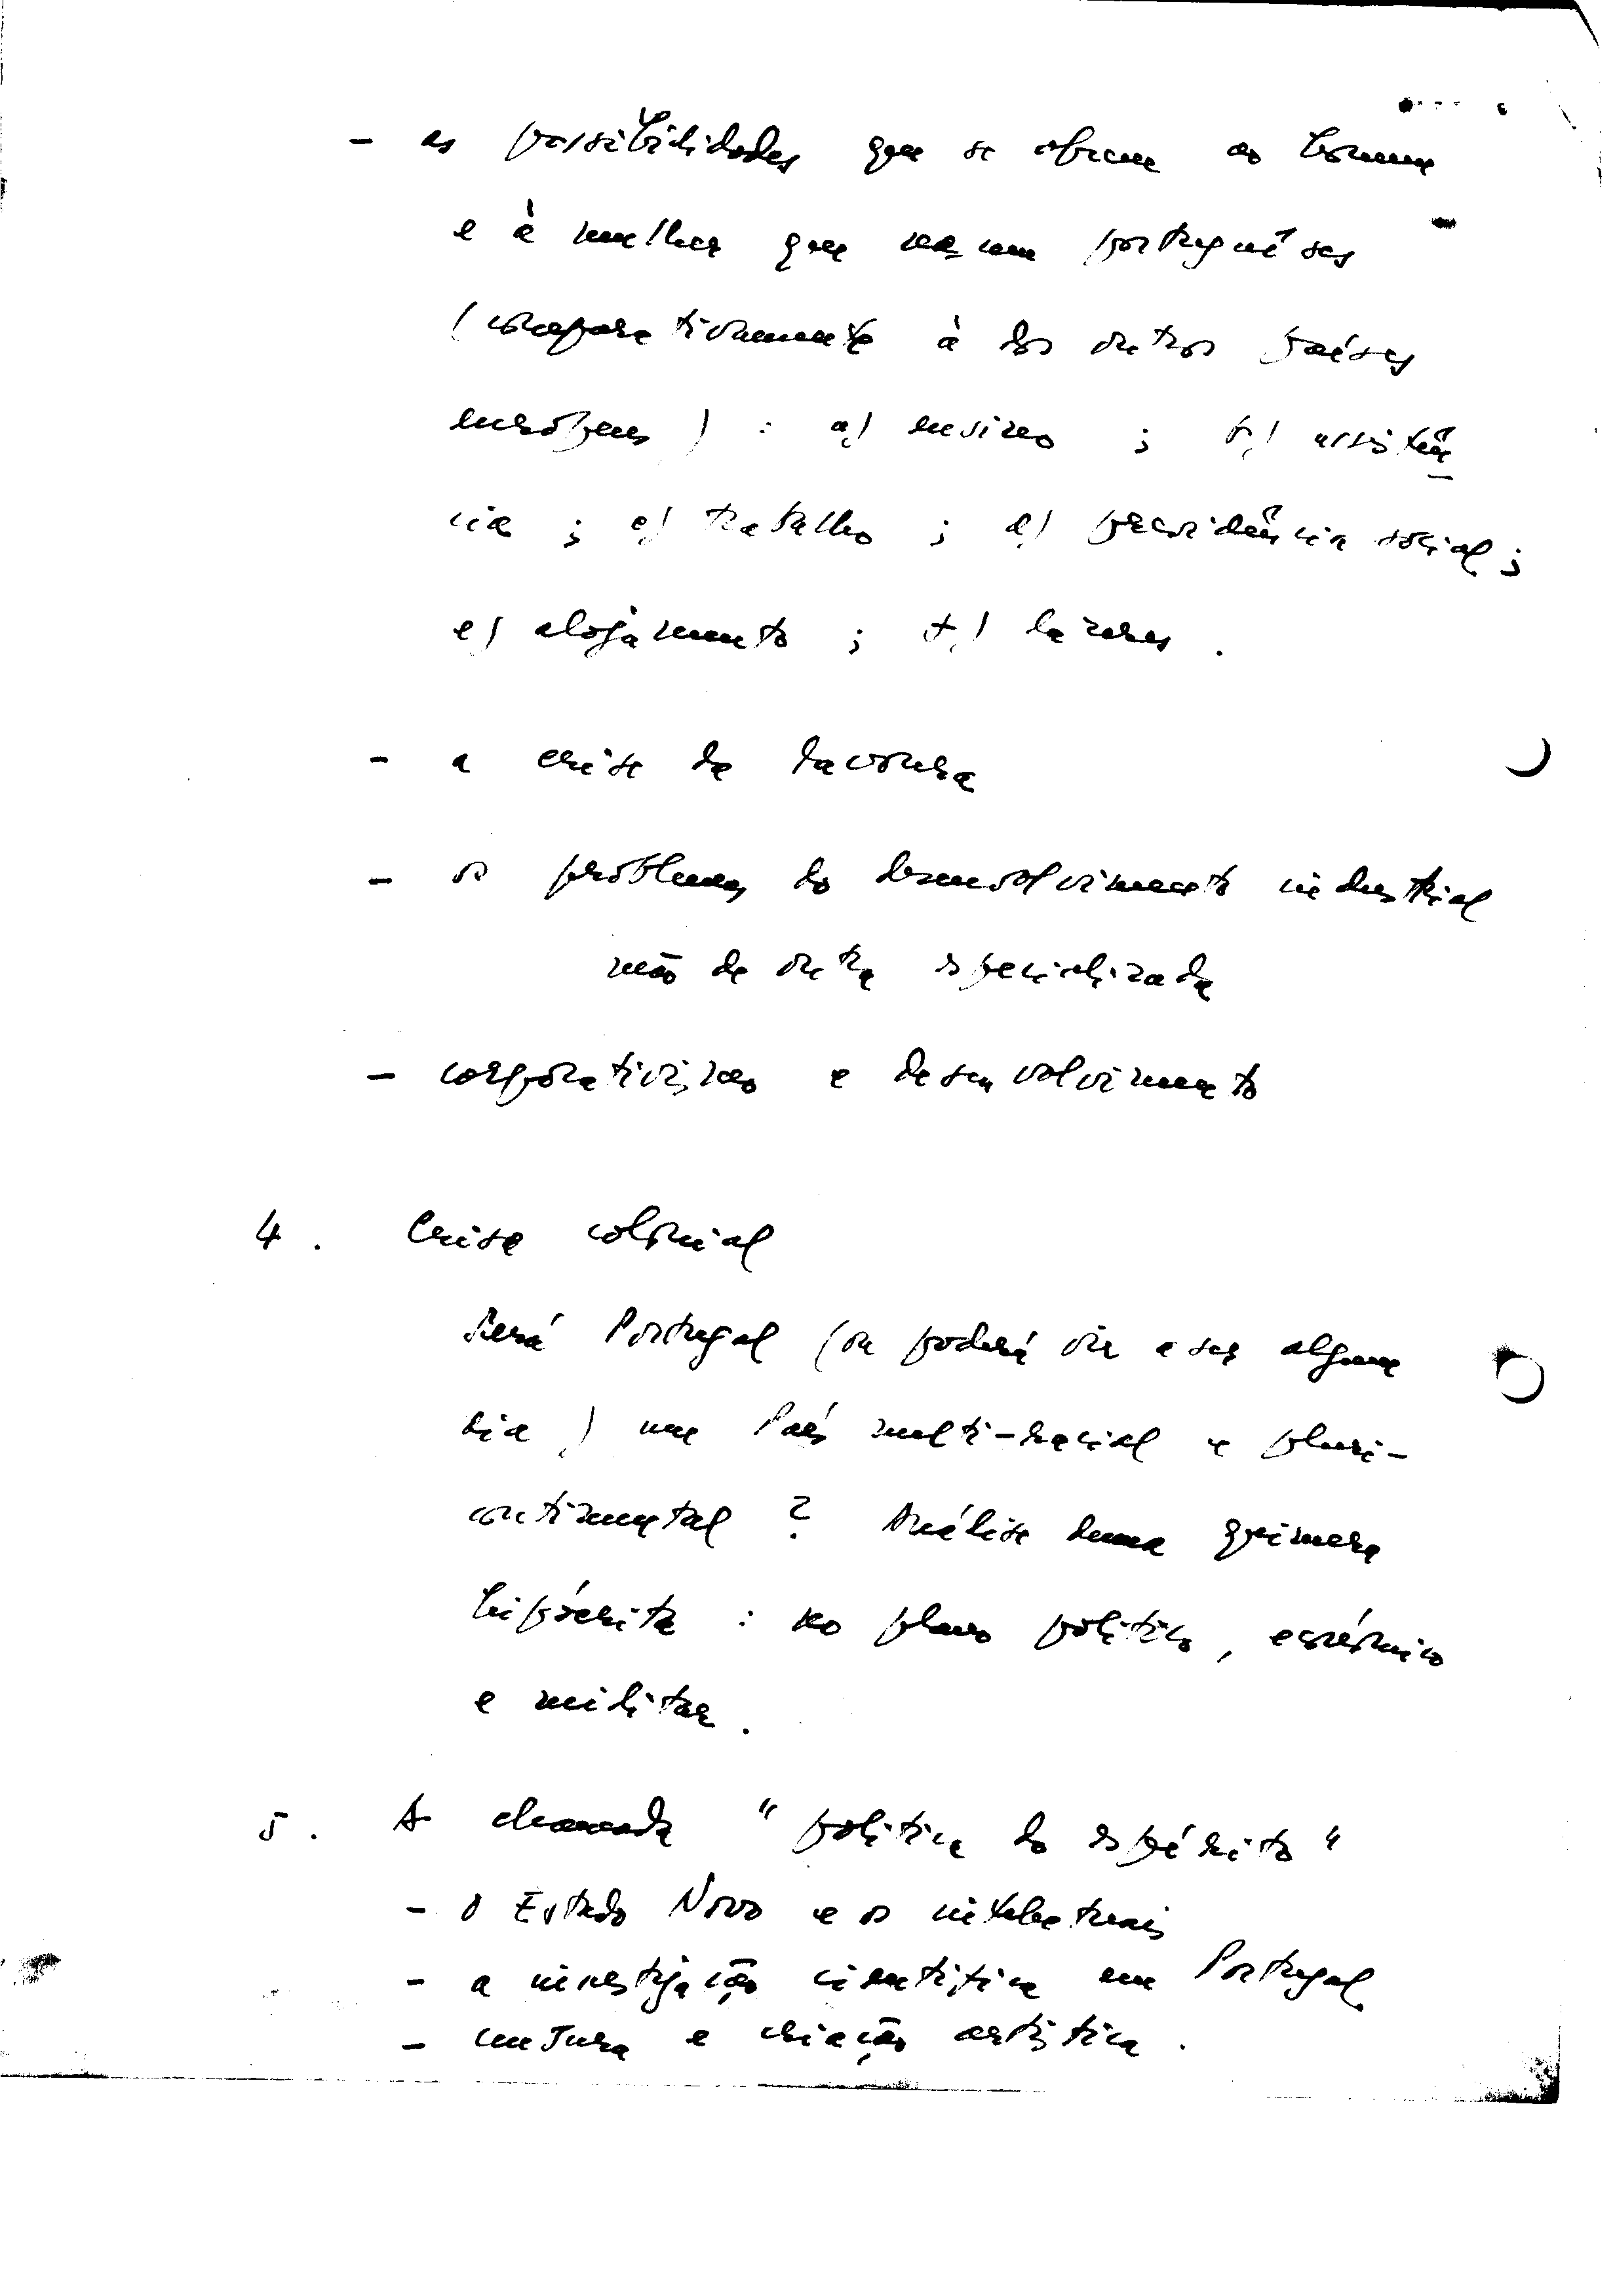 - as possibilidades que se abrem ao homem
e à mulher que nascem portuguêses
(comparativamente à dos outros países
europeus) : a) ensino ; b) assistên
cia ; c) trabalho ; d) previdência social ;
e) alojamento ; f) lazeres .
- a crise da lavoura
- os problemas do desenvolvimento industrial
mão de obra especializada
- corporativismo e desenvolvimento
4 . Crise colonial
Será Portugal (ou poderá vir a ser algum
dia) um País multi-racial e pluri-
continental ? Análise duma quimera
hipócrita : no plano político, económico
e militar .
5 . A chamada "política do espírito"
- o Estado Novo e os intelectuais
- a investigação científica em Portugal
- cultura e criação artística .